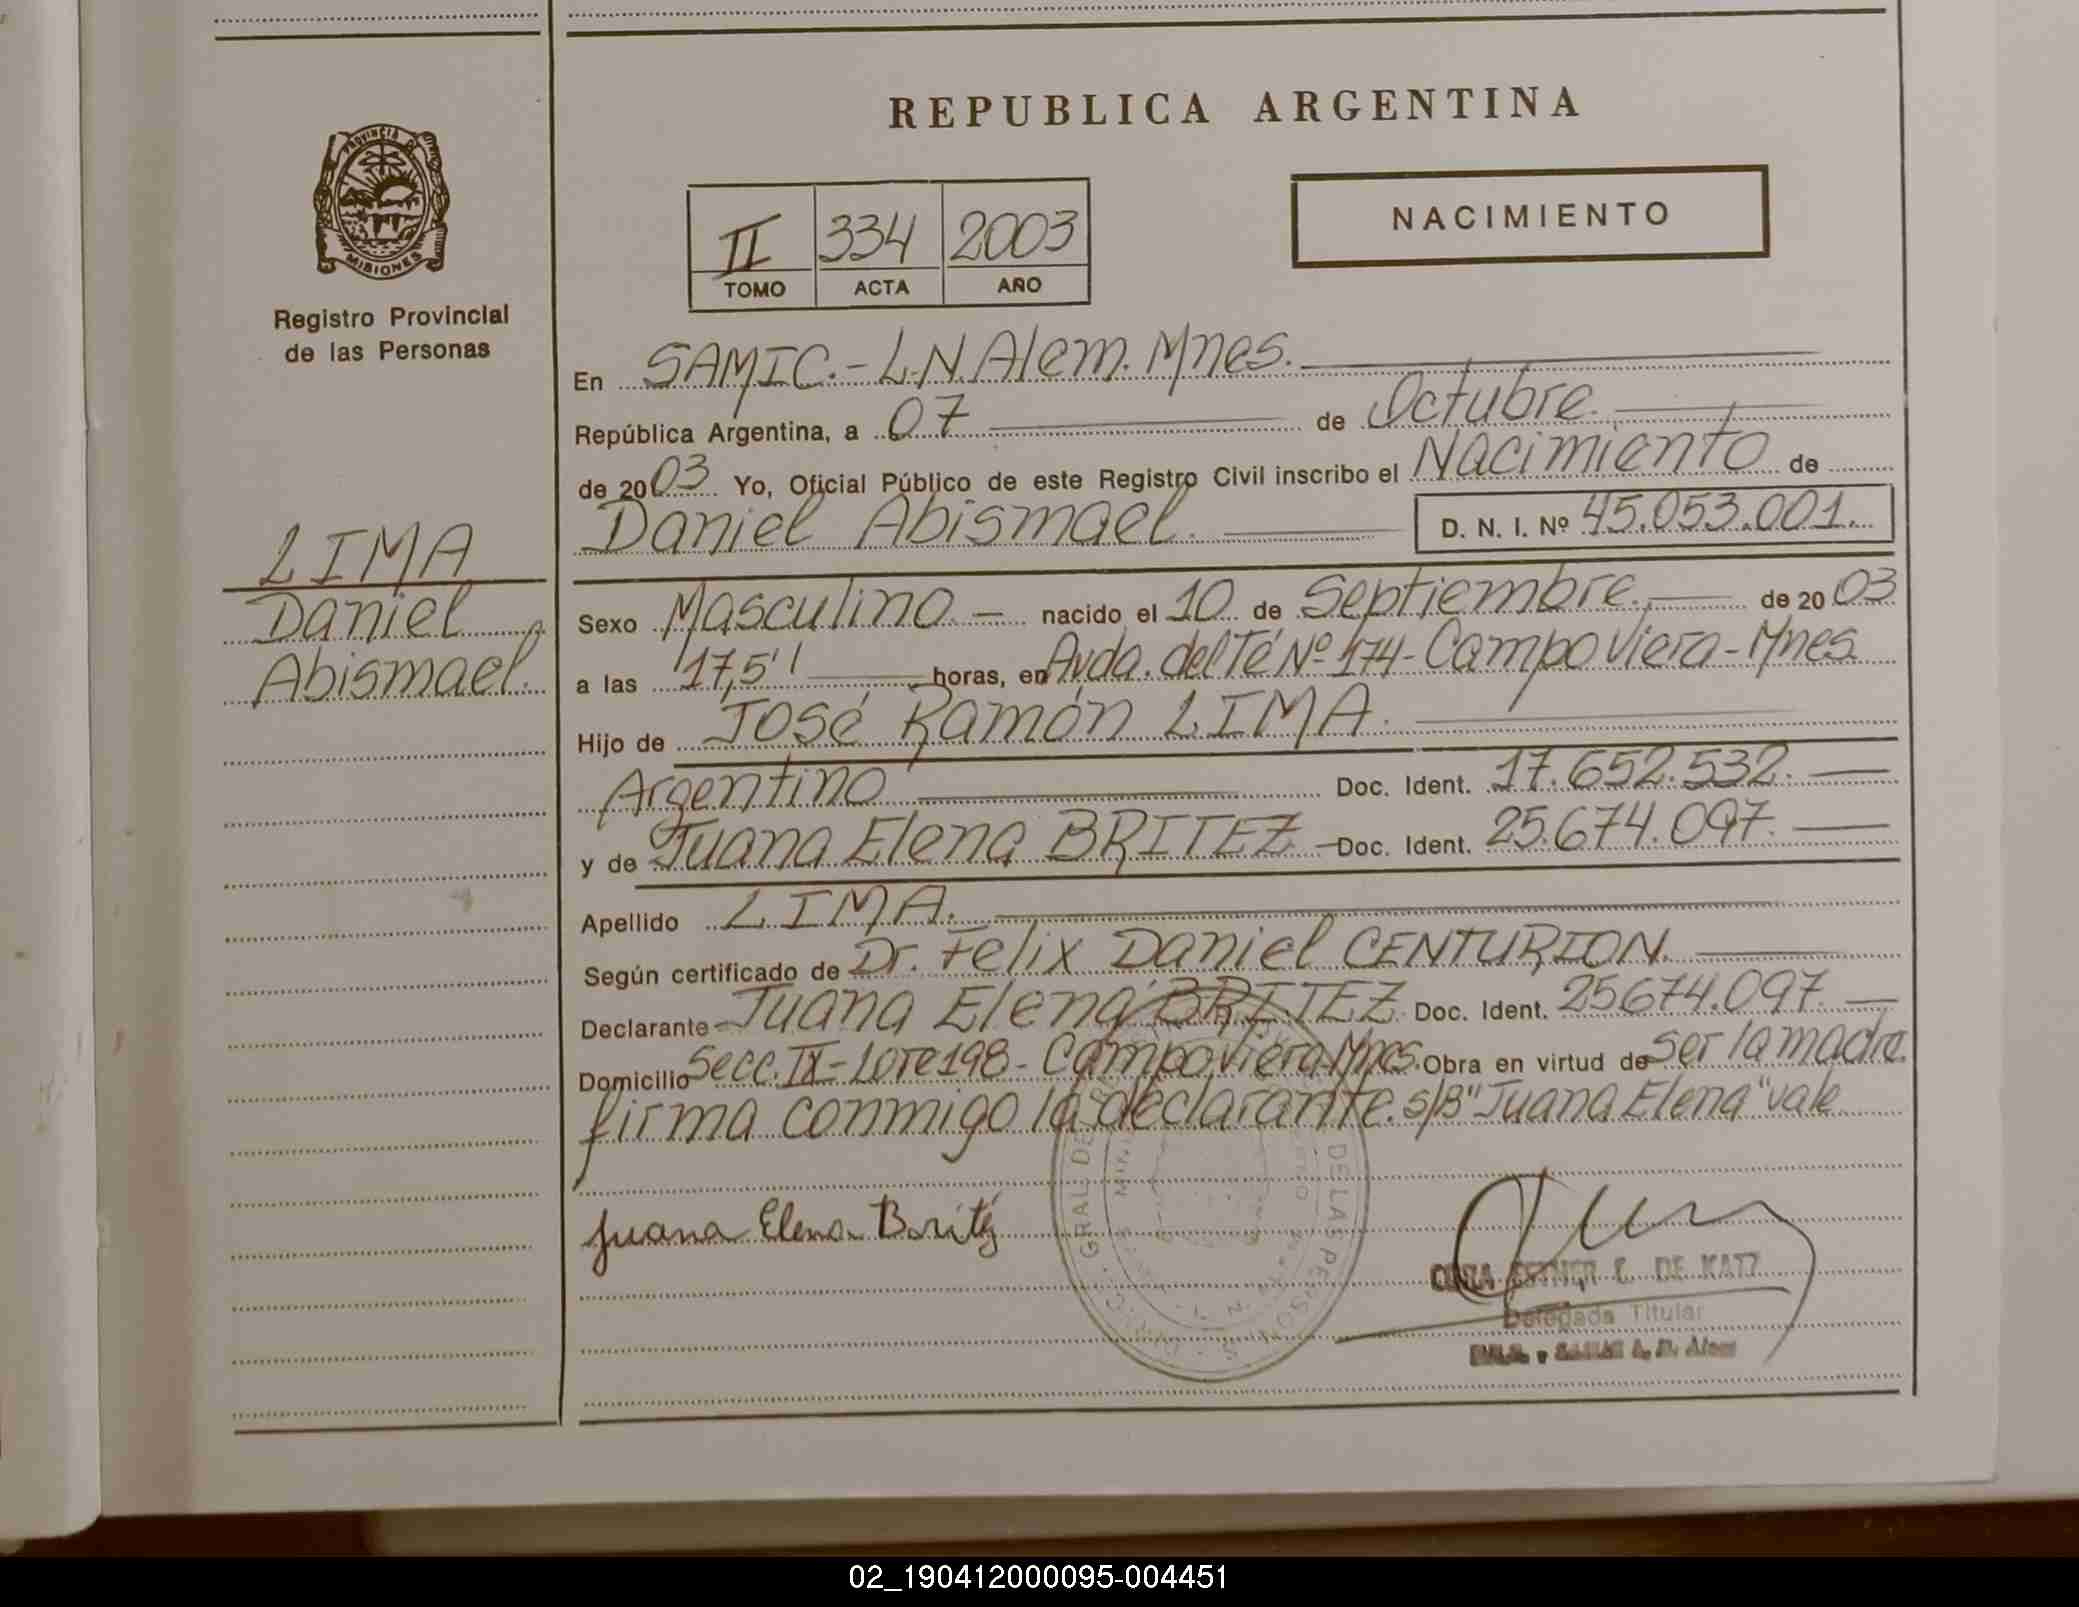 REPUBLICA ARGENTINA
PROVINCIA DE
MISIONES
Registro Provincial
de las Personas
II 334 2003
TOMO ACTA AÑO
NACIMIENTO
En SAMIC.-L.N.Alem.Mnes.
República Argentina, a 07 de Octubre.
de 2003 Yo, Oficial Público de este Registro Civil inscribo el Nacimiento de
Daniel Abismael. D. N. I. Nº 45.053.001.
LIMA
Daniel
Abismael.
Sexo Masculino.- nacido el 10 de Septiembre. de 2003
a las 17,5' horas, en Avda. del Té Nº 174-Campo Viera-Mnes.
Hijo de José Ramón LIMA.
Argentino Doc. Ident. 17.652.532.
y de Juana Elena BRITEZ - Doc. Ident. 25.674.097.
Apellido LIMA.
Según certificado de Dr. Felix Daniel CENTURION.
Declarante Juana Elena BRITEZ Doc. Ident. 25674.097.
Domicilio Secc. IX-Lote 198-Campo Viera-Mnes. Obra en virtud de ser la madre.
firma conmigo la declarante. s/B "Juana Elena" vale
Juana Elena Britéz
GRAL DE DE LAS PERSONAS
ESTHER C. DE KATZ
Delegada Titular
02_190412000095-004451